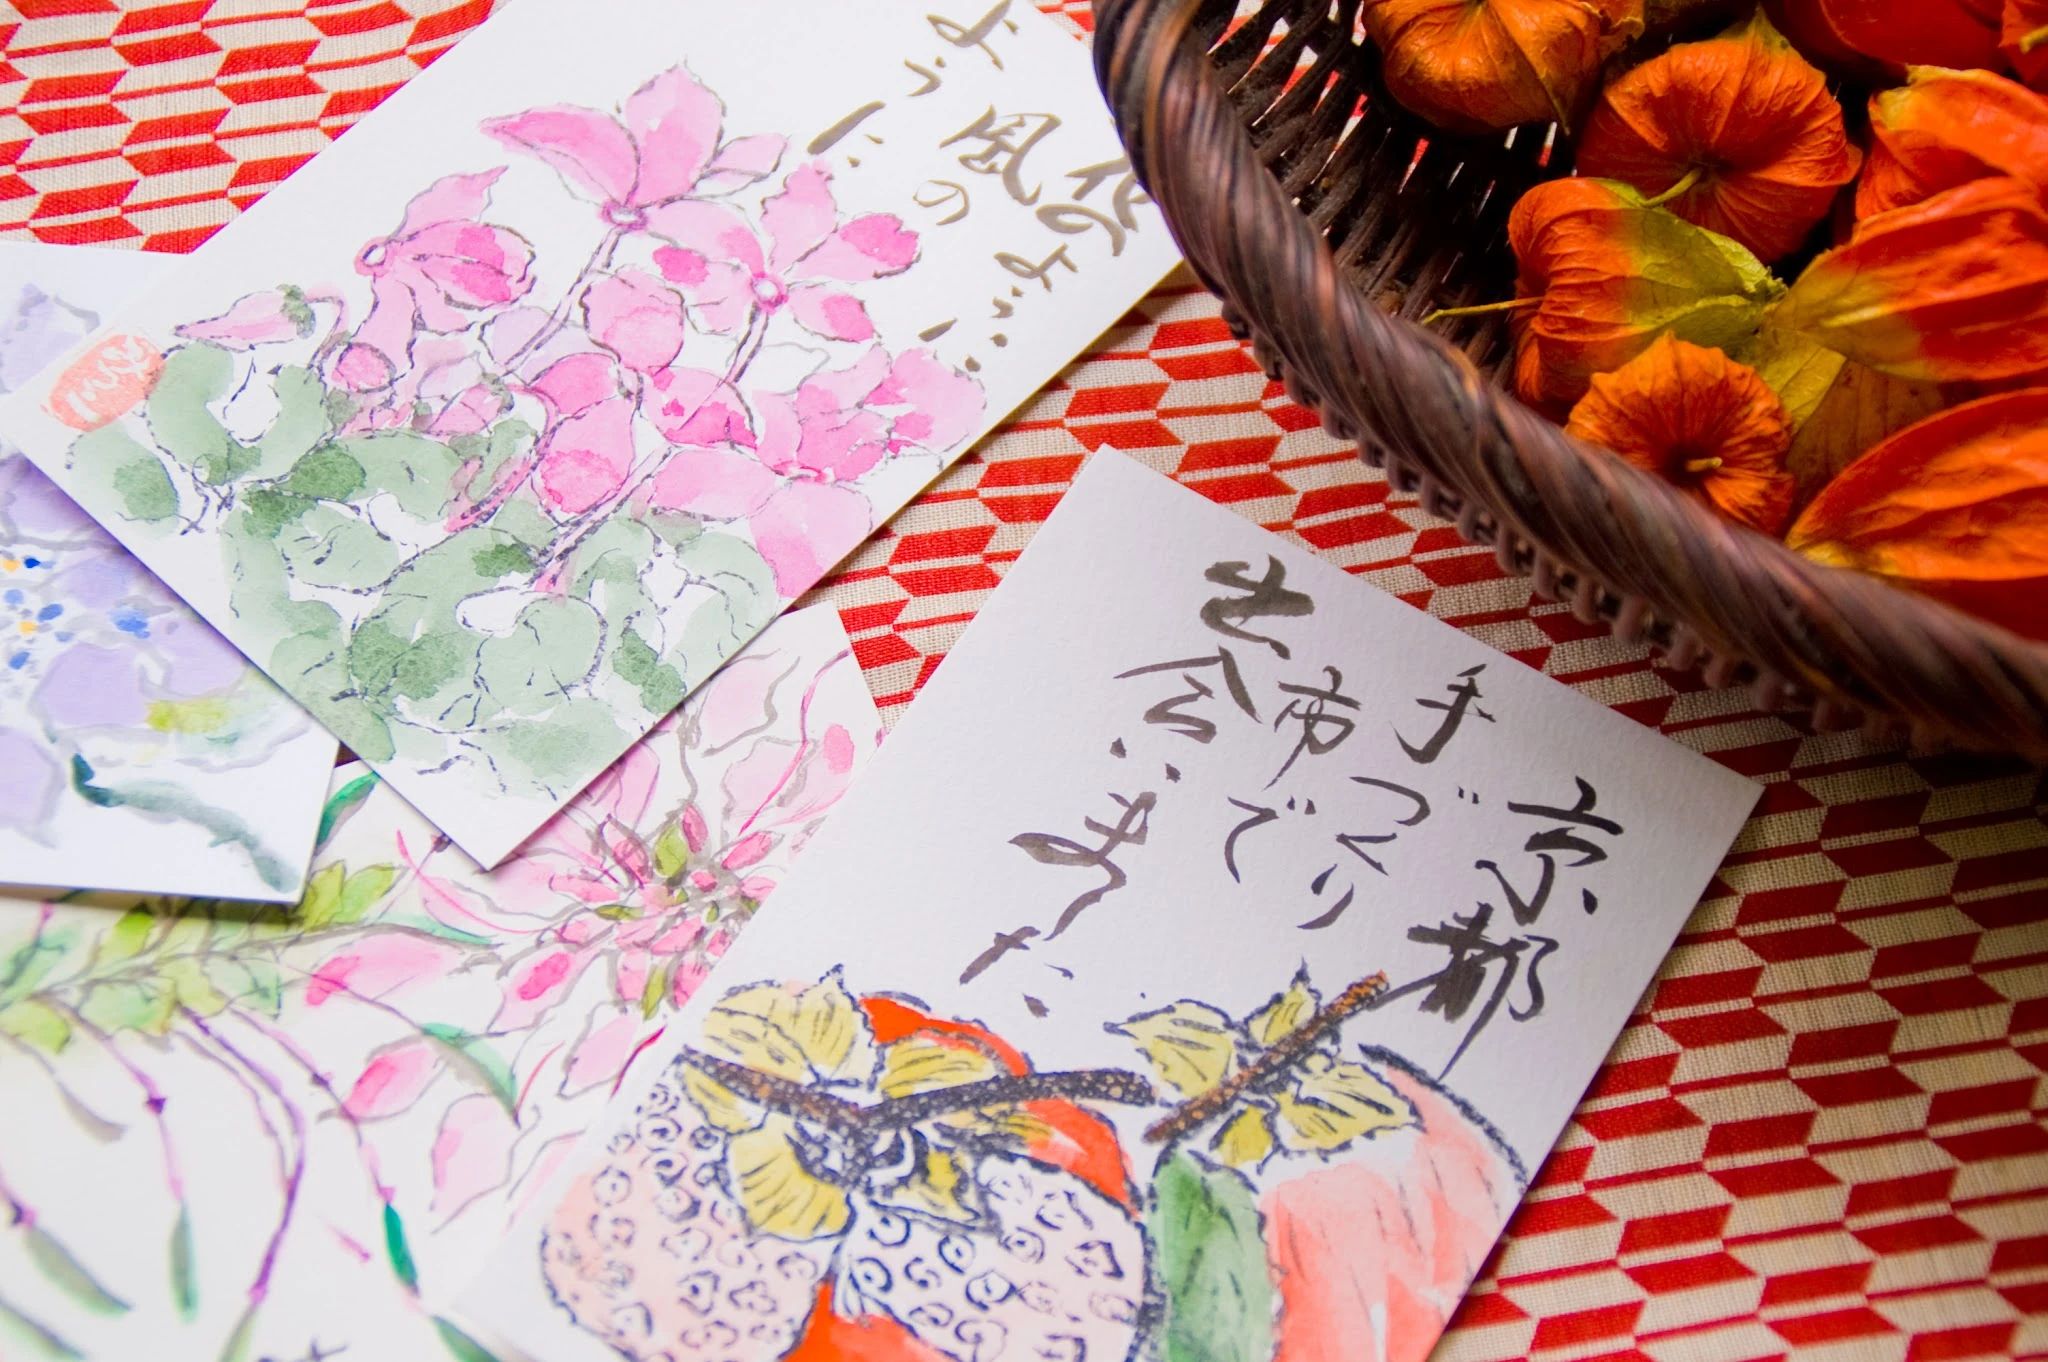 花のよう…
風の
ように
京都
手づくり
市で
出会い
ました